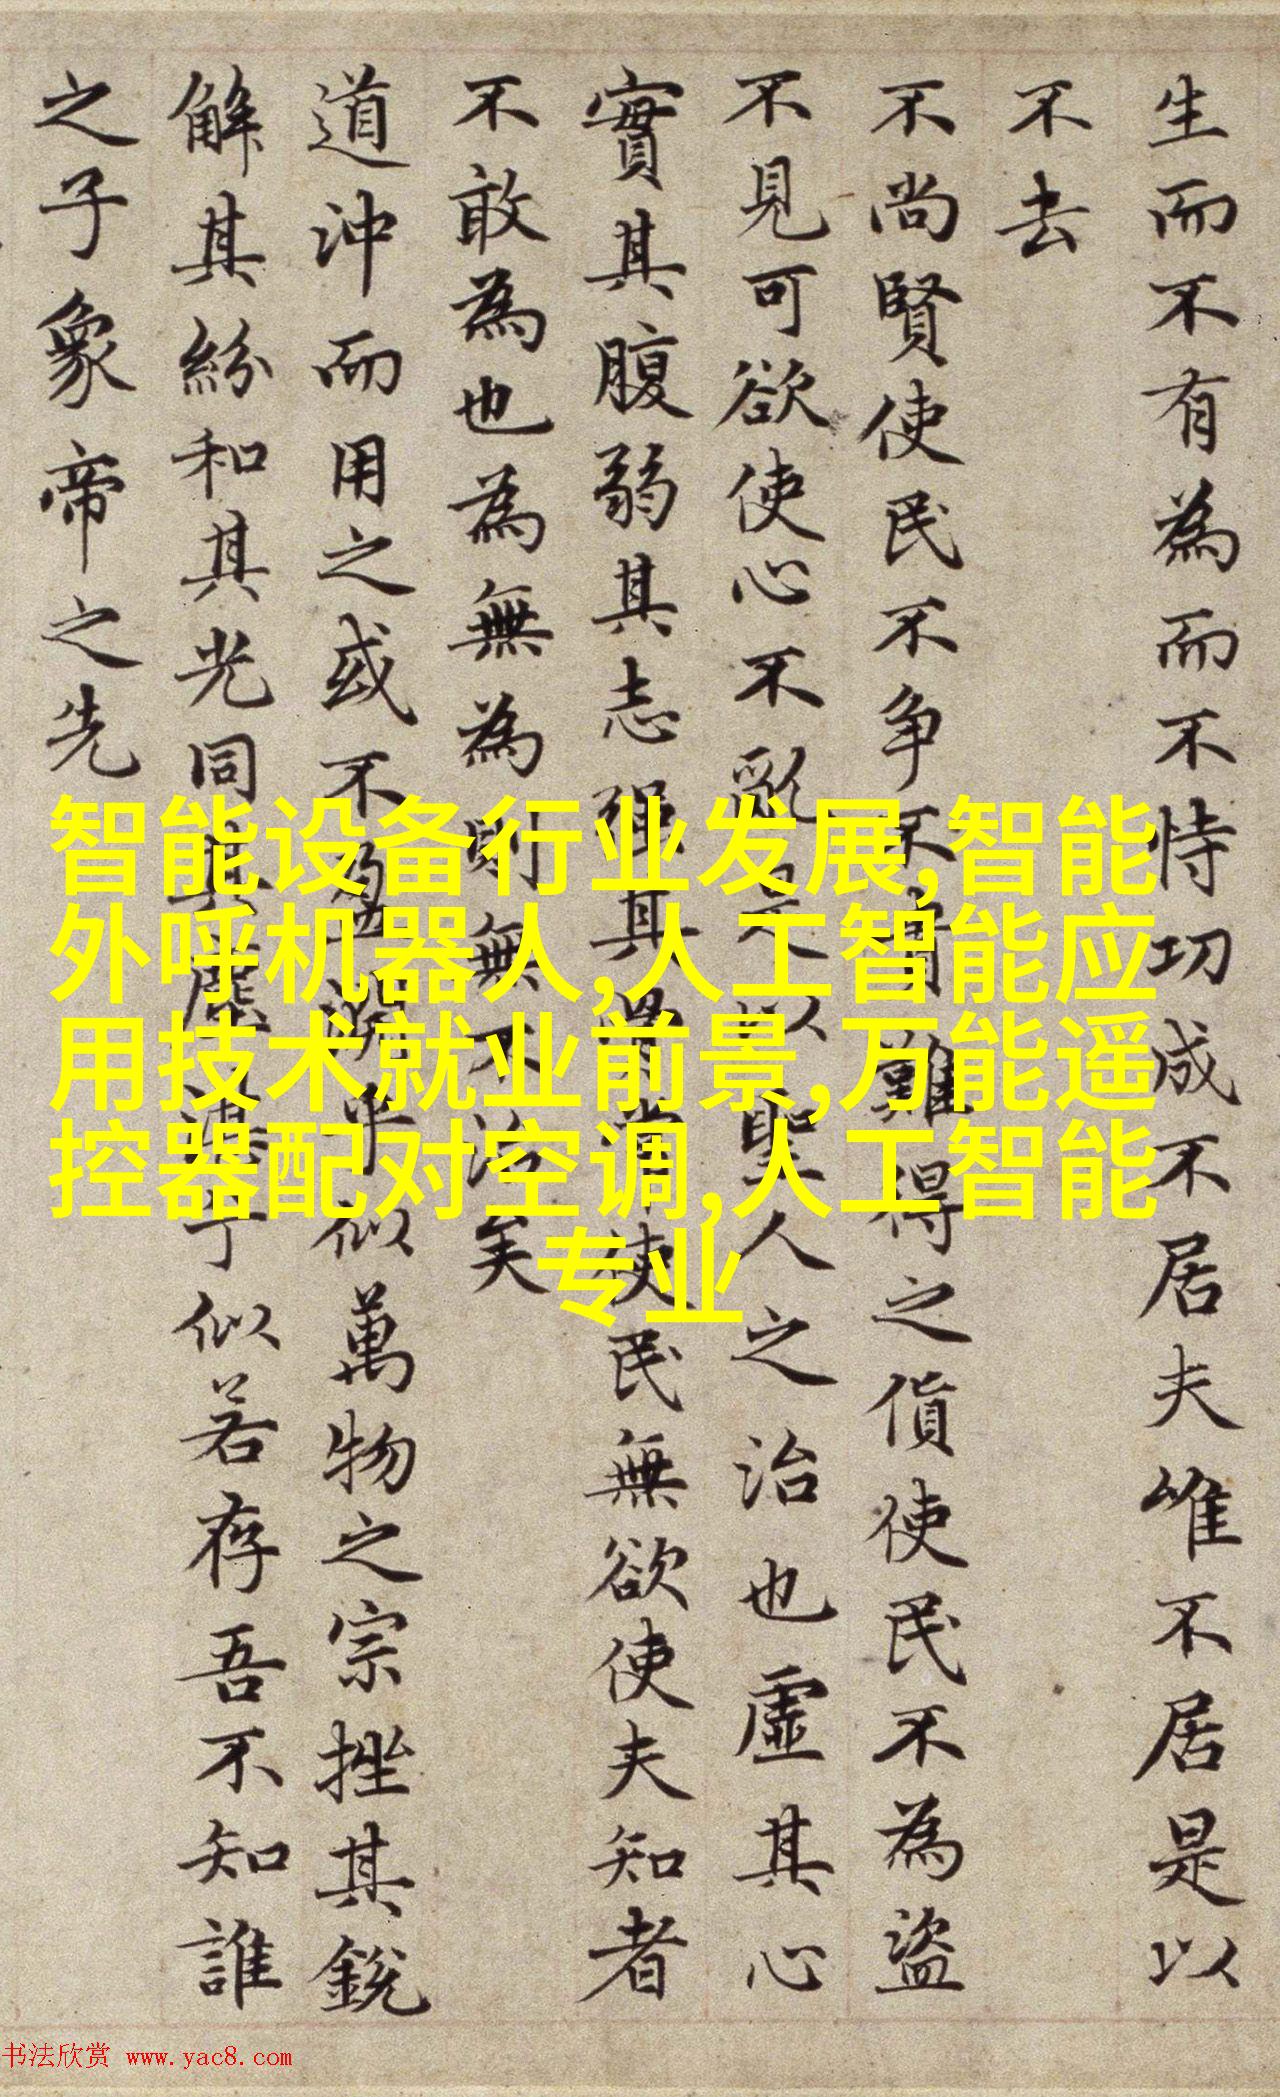 生而不有為而不恃功成不居夫唯不居是以
不去
不尚賢使民不争不貴難得之貨使民不為盜
不見可欲使心不亂是以聖人之治也虛其心
實其腹弱其志强其骨常使民無欲使夫知者
不敢為也為無為則無不治矣
道沖而用之或不盈淵乎似萬物之宗挫其銳
解其紛和其光同其塵湛兮似若存吾不知誰
之子象帝之先
智能设备行业发展,智能
外呼机器人,人工智能应
用技术就业前景,万能遥
控器配对空调,人工智能
专业
书法欣赏 www.yac8.com